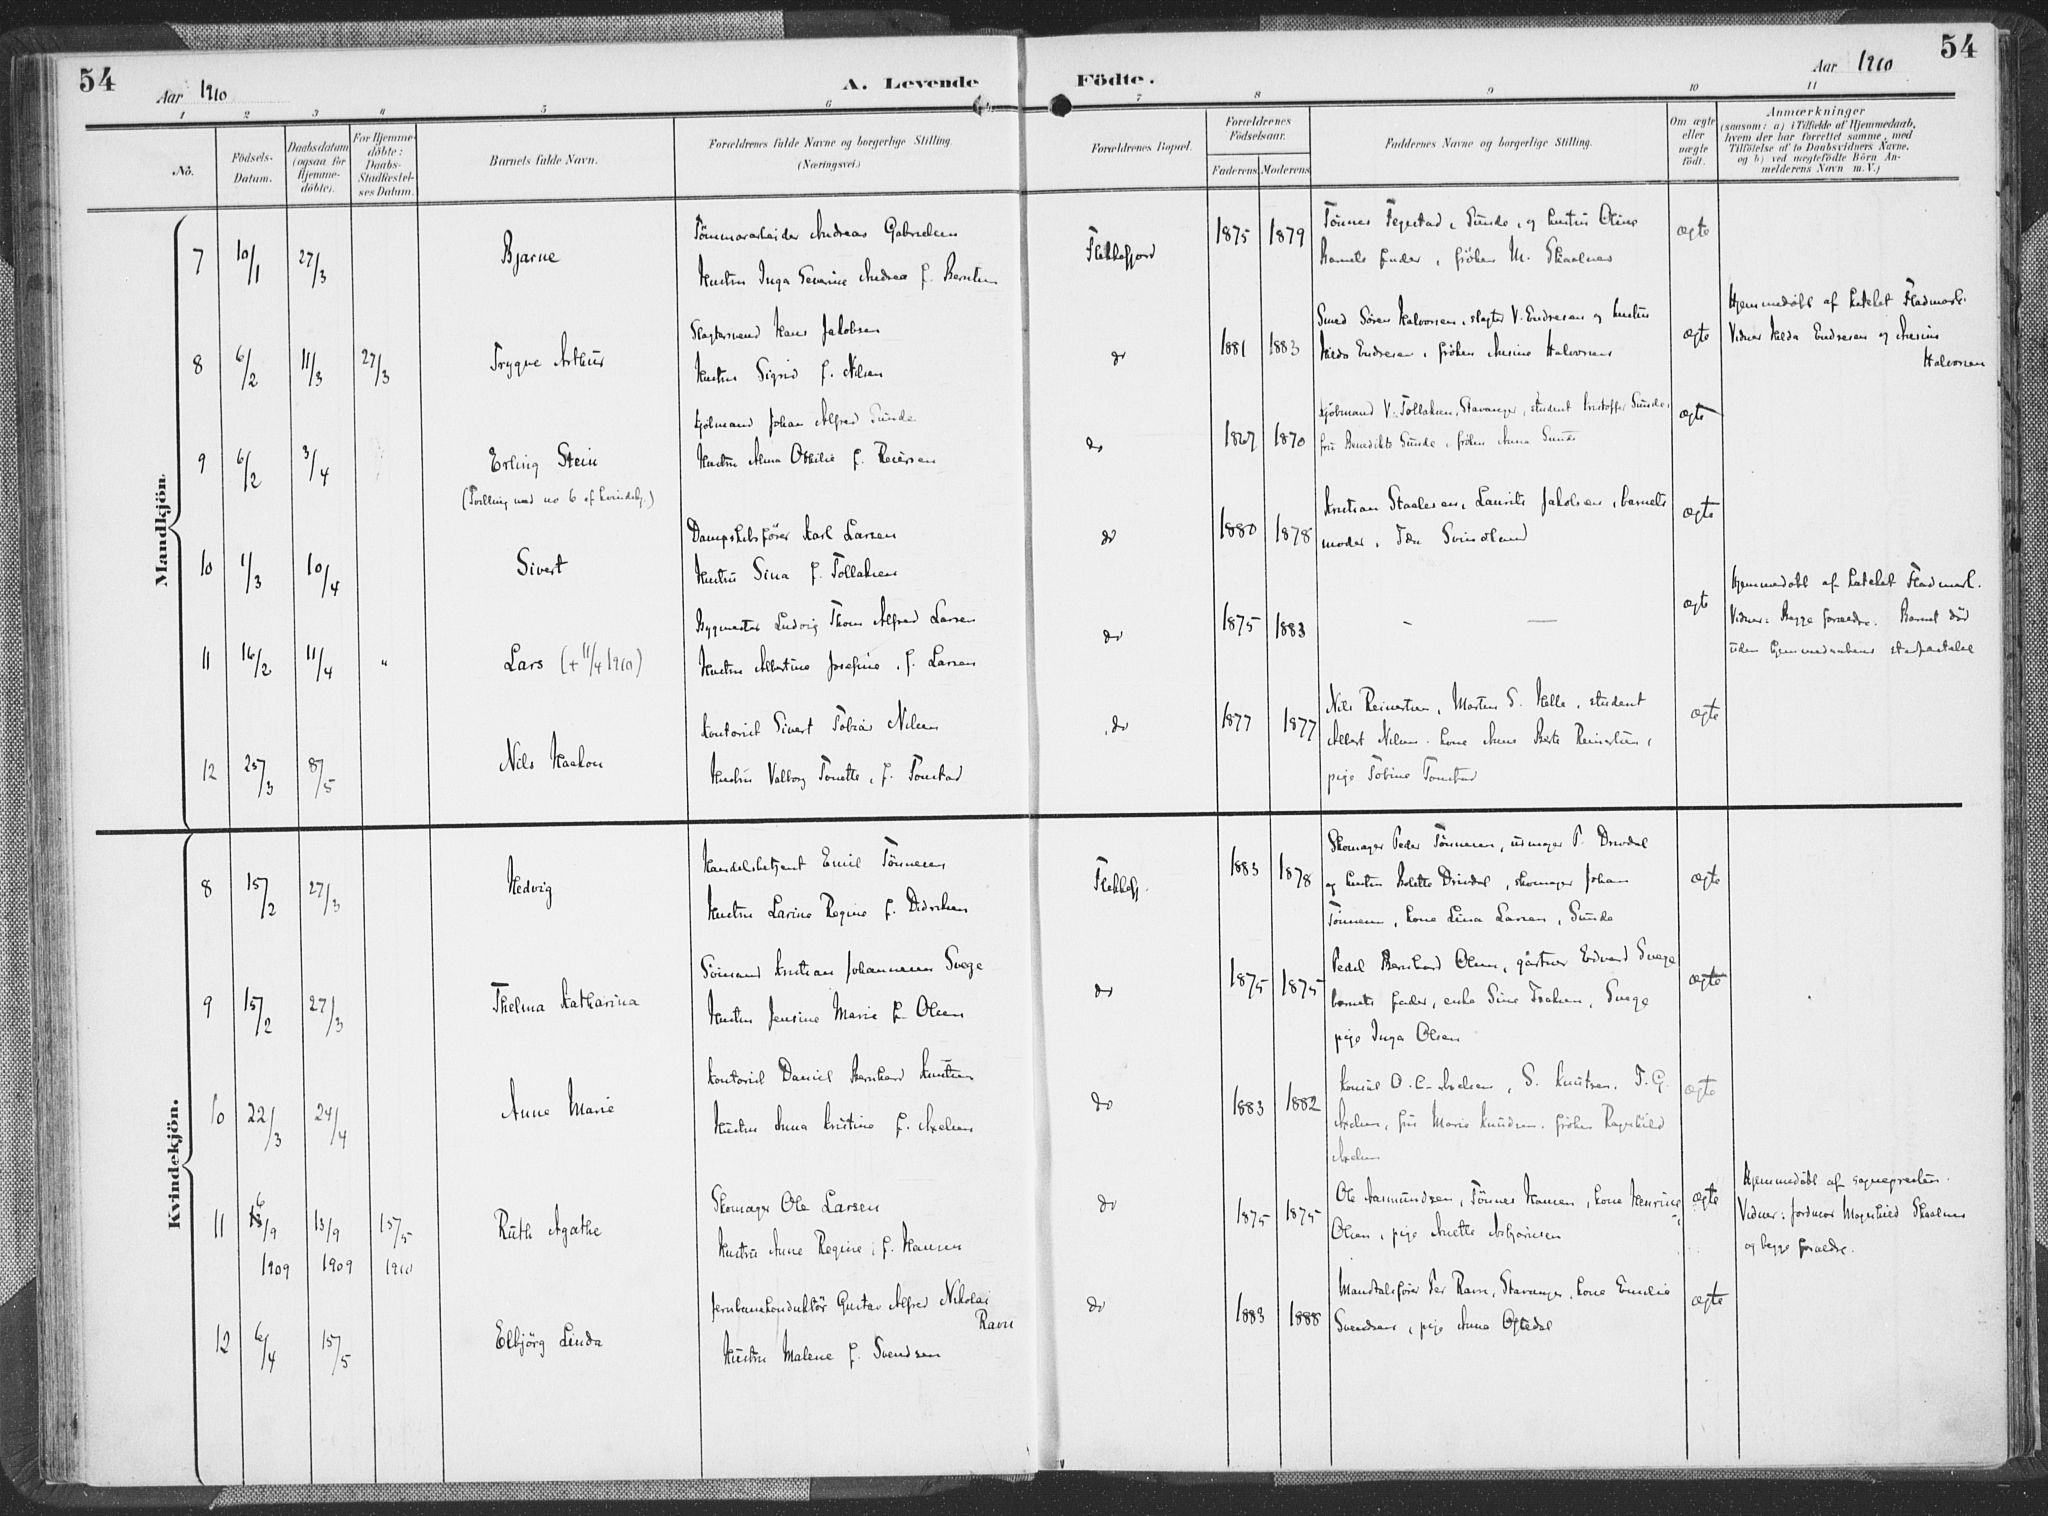 54
Aar 1910
A. Levende Födte.
Aar 1910
54
1 2 3 4 5 6 7 8 9 10 11
No.
Födsels-Datum.
Daabsdatum (ogsaa for Hjemme-döbte).
For Hjemme-döbte: Daabs-Stadfæstel-ses Datum.
Barnets fulde Navn.
Forældrenes fulde Navne og borgerlige Stilling.
(Næringsvei.)
Forældrenes Bopæl.
Forældrenes Födselsaar.
Faderens Moderens
Faddernes Navne og borgerlige Stilling.
Om ægte eller uægte födt.
Anmærkninger
(saasom: a) i Tilfælde af Hjemmedaab,
hvem der har forrettet samme, med
Tilföielse af to Daabsvidners Navne,
og b) ved uægtefödte Börn An-
melderens Navn m.V.)
Mandkjön.
7 10/1 27/3 Bjarne
Tömmerarbeider Andreas Gabrielsen
Hustru Inga Severine Andrea f. Berntsen
Flekkefjord 1875 1879
Tönnes Fegestad, Sunde, og hustru Oline
Barnets fader, fröken M. Skaalnes
ægte
8 6/2 11/3 27/3 Trygve Arthur
Slagtersvend Hans Jakobsen
Hustru Sigrid f. Nilsen
do 1881 1883
Smed Sören Halvorsen, slagter V. Endresen og hustru
Hilda Endresen, fröken Halvorsen
ægte
Hjemmedöbt af Fladmark.
Vidner Hilda Endresen og
Halvorsen
9 6/2 3/4 Erling Stein
(Tvilling med no 6 af kvindekj.)
Kjöbmand Johan Alfred Sunde
Hustru Alma Othilie f. Reiersen
do 1867 1870
Kjöbmand V. Tollaksen, Stavanger, student Kristoffer Sunde,
fru Benedikte Sunde, fröken Anna Sunde
ægte
10 1/3 10/4 Sivert
Dampskibsförer Karl Larsen
Hustru Sina f. Tollaksen
do 1880 1878
Kristian Staalesen, Laurits Jakobsen, barnets
moder, Svindland
ægte
11 16/2 11/4 " Lars (+ 11/4 1910)
Bygmester Ludvig Thom Alfred Larsen
Hustru Albertine Josefine, f. Larsen
do 1875 1883
- —
ægte
Hjemmedöbt af Fladmark.
Vidner: Begge forældre. Barnet död
uden hjemmedaabens stadfæstelse
12 25/3 8/5 Nils Haakon
Kontorist Sivert Tobias Nilsen
Hustru Valborg Tonette, f. Tonstad
do 1877 1877
Nils Reinertsen, Morten S. Helle, student
Albert Nilsen. Kone Anne Berte Reinertsen,
pige Tobine Tonstad
ægte
Kvindekjön.
8 15/2 27/3 Hedvig
Handelsbetjent Emil Tönnesen
Hustru Larine Regine f. Didriksen
Flekkefj. 1883 1878
Skomager Peder Tönnesen, urmager P. Drivdal
og hustru Bolette Drivdal, skomager Johan
Tönnesen, kone Lina Larsen, Sunde
ægte
9 15/2 27/3 Thelma Katharina
Sömand Kristian Johannesen Svege
Hustru Jensine Marie f. Olsen
do 1875 1875
Pedel Bernhard Olsen, gårtner Edvard Svege
barnets fader, enke Sine Isaksen, Svege
pige Inga Olsen
ægte
10 22/3 24/4 Anne Marie
Kontorist Daniel Bernhard Knutsen
Hustru Anna Kristine f. Axelsen
do 1883 1882
Konsul O. C. Axelsen, S. Knutsen. T. G.
Axelsen, fru Marie Knudsen. fröken Ragnhild
Axelsen
ægte
11 6/9 1909 13/9 1909 15/5 1910 Ruth Agathe
Skomager Ole Larsen
Hustru Anne Regine, f. Hansen
do 1875 1875
Ole Aasmundsen, Tönnes Hansen, kone Henrine
Olsen, pige Anette Asbjörnsen
ægte
Hjemmedöbt af sognepresten.
Vidner: Jordmor Skaalnes
og begge forældre.
12 6/4 15/5 Elbjörg Linda
Jernbanekonduktör Gustav Alfred Nikolai
Ravn
Hustru Malene f. Svendsen
do 1883 1888
Mandtalsförer Per Ravn, Stavanger, kone Emilie
Svendsen, pige Anna Oftedal
ægte